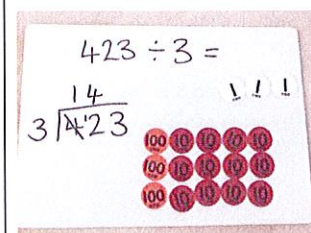 423 ÷ 3 =
14
3 4¹23
1 1 1
100 10 10 10 10
100 10 10 10 10
100 10 10 10 10